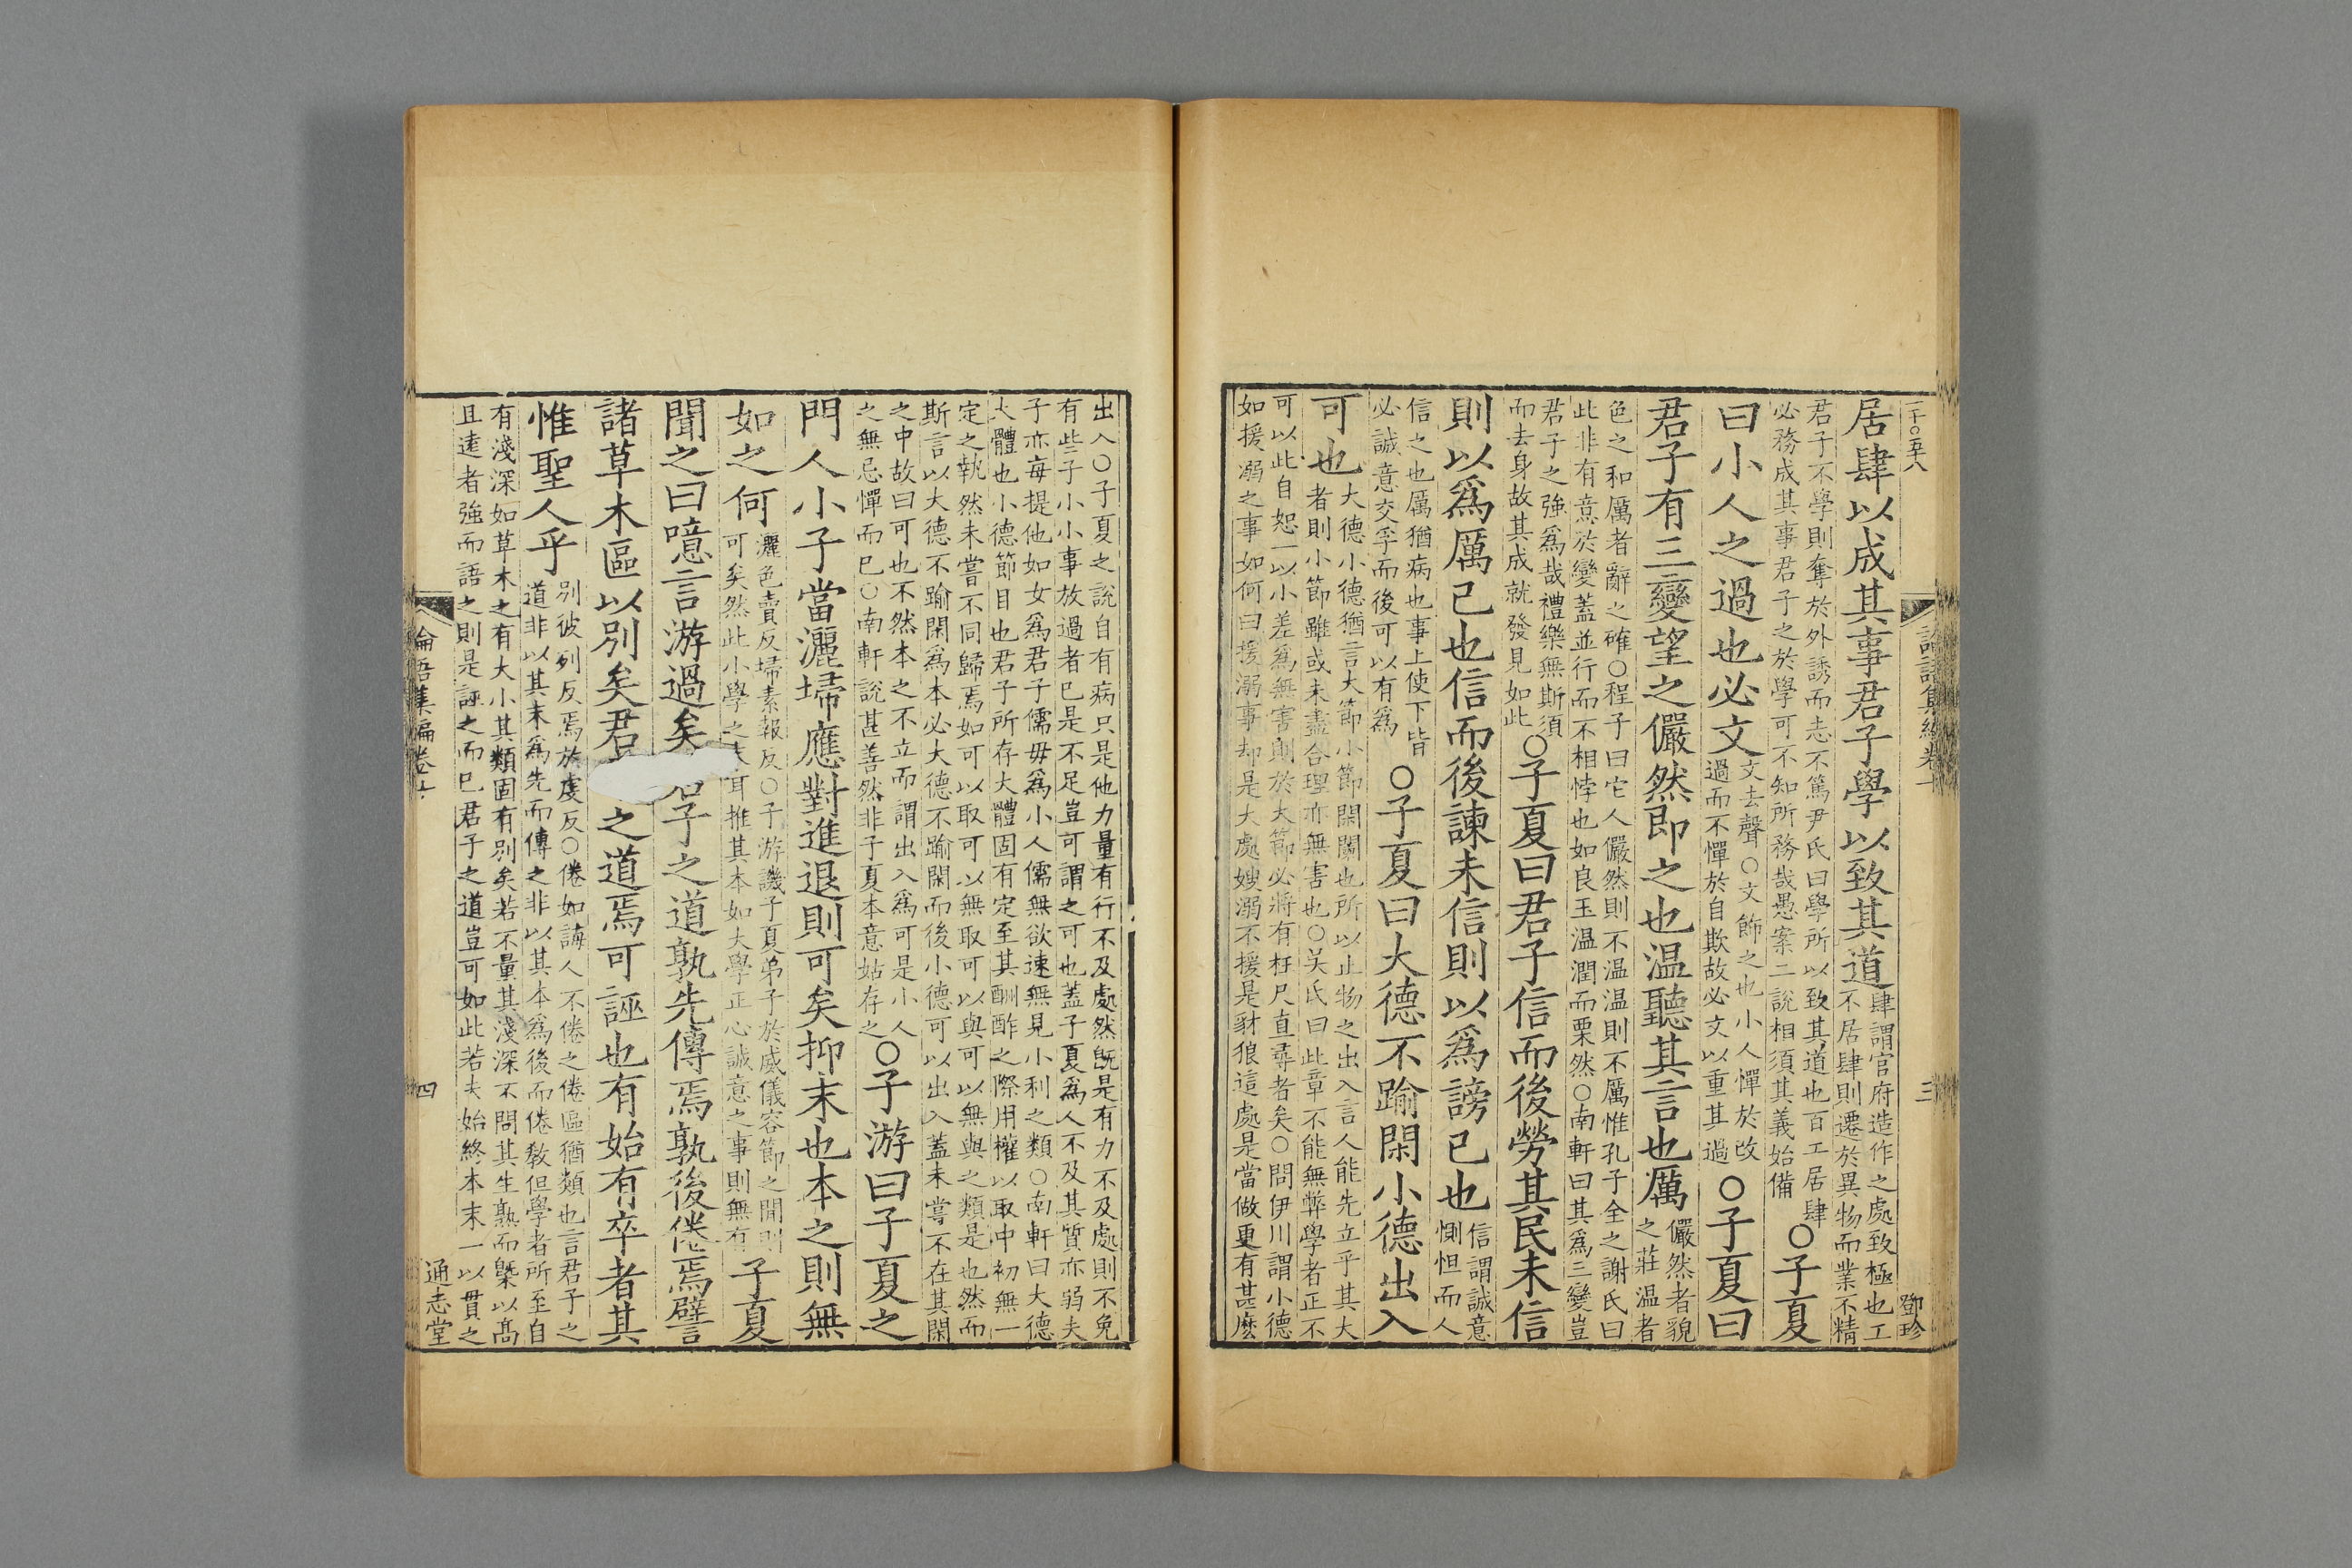 二千○五十八
論語集編卷十
三
鄧珍
居肆以成其事君子學以致其道肆謂官府造作之處致極也工不居肆則遷於異物而業不精
君子不學則奪於外誘而志不篤尹氏曰學所以致其道也百工居肆必務成其事君子之於學可不知所務哉愚案二說相須其義始備○子夏
曰小人之過也必文文去聲○文飾之也小人憚於改過而不憚於自欺故必文以重其過○子夏曰
君子有三變望之儼然即之也温聽其言也厲儼然者貌之莊温者
色之和厲者辭之確○程子曰它人儼然則不温温則不厲惟孔子全之謝氏曰此非有意於變蓋並行而不相悖也如良玉温潤而栗然○南軒曰其為三變豈
君子之強為哉禮樂無斯須而去身故其成就發見如此○子夏曰君子信而後勞其民未信
則以為厲已也信而後諫未信則以為謗已也信謂誠意惻怛而人
信之也厲猶病也事上使下皆必誠意交孚而後可以有為○子夏曰大德不踰閑小德出入
可也大德小德猶言大節小節閑闌也所以止物之出入言人能先立乎其大者則小節雖或未盡合理亦無害也○吴氏曰此章不能無弊學者正不
可以此自恕一以小差為無害則於大節必將有枉尺直尋者矣○問伊川謂小德如援溺之事如何曰援溺事却是大處嫂溺不援是豺狼這處是當做更有甚麽
出入○子夏之說自有病只是他力量有行不及處然旣是有力不及處則不免有些子小小事放過者已是不足豈可謂之可也蓋子夏為人不及其質亦弱夫
子亦每提他如女為君子儒毋為小人儒無欲速無見小利之類○南軒曰大德大體也小德節目也君子所存大體固有定至其酬酢之際用權以取中初無一
定之執然未嘗不同歸焉如可以取可以無取可以與可以無與之類是也然而斯言以大德不踰閑為本必大德不踰閑而後小德可以出入蓋未嘗不在其閑
之中故曰可也不然本之不立而謂出入為可是小人之無忌憚而已○南軒說甚善然非子夏本意姑存之○子游曰子夏之
門人小子當灑埽應對進退則可矣抑末也本之則無
如之何灑色賣反埽素報反○子游譏子夏弟子於威儀容節之間則可矣然此小學之末耳推其本如大學正心誠意之事則無有子夏
聞之曰噫言游過矣君子之道孰先傳焉孰後倦焉譬
諸草木區以別矣君之道焉可誣也有始有卒者其
惟聖人乎別彼列反焉於虔反○倦如誨人不倦之倦區猶類也言君子之道非以其末為先而傳之非以其本為後而倦敎但學者所至自
有淺深如草木之有大小其類固有別矣若不量其淺深不問其生熟而槩以髙且遠者強而語之則是誣之而已君子之道豈可如此若夫始終本末一以貫之
論語集編卷十
四
通志堂